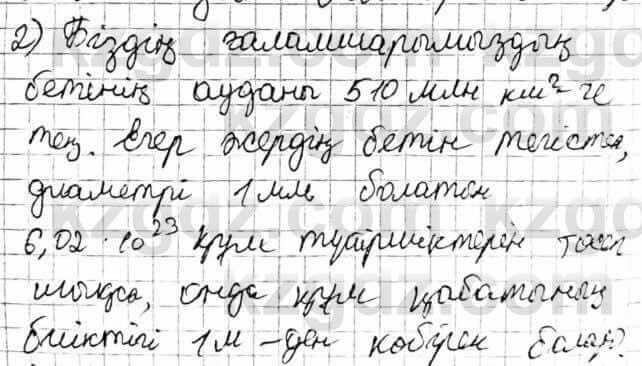 2) Біздің ғаламшарымыздың
бетінің ауданы 510 млн км² ге
тең. Егер жердің бетін тегістеп,
диаметрі 1 мм болатын
6,02 · 10²³ құм түйіршіктерін
шықса, онда құм қабатының
биіктігі 1 м -ден көбірек болаң?